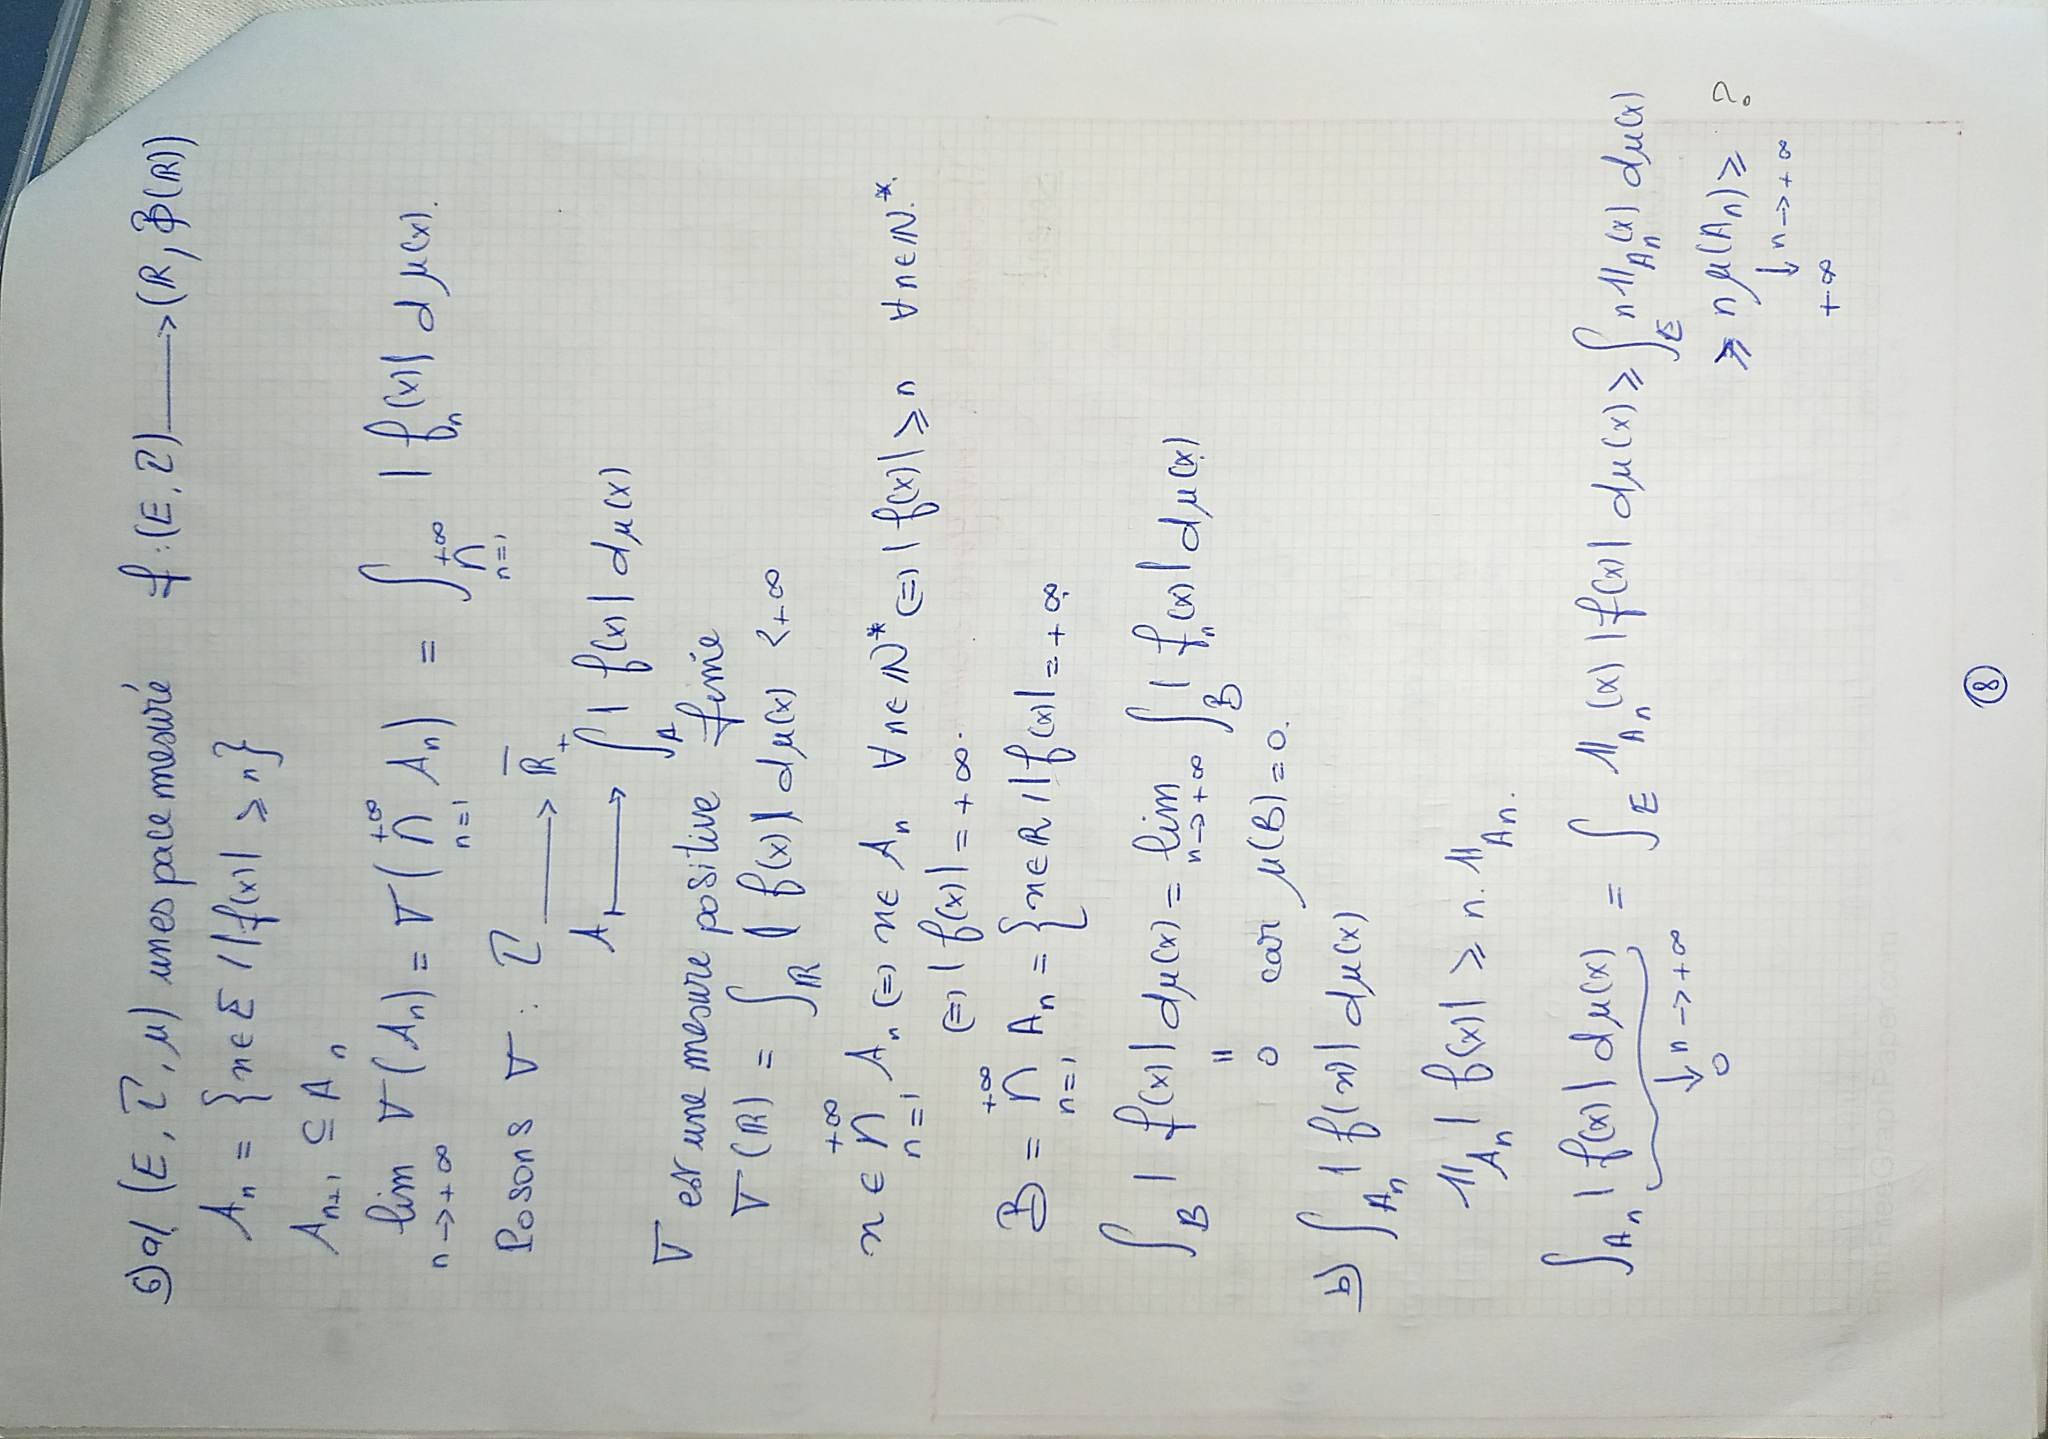 6) a/ (E, τ, μ) un espace mesuré f : (E, τ) ⟶ (ℝ, B(ℝ))
Aₙ = {x ∈ E / |f(x)| ≥ n}
Aₙ₊₁ ⊆ Aₙ
lim_{n→+∞} ∇(Aₙ) = ∇(⋂_{n=1}^{+∞} Aₙ) = ∫_{⋂_{n=1}^{+∞}} |fₙ(x)| dμ(x).
Posons ∇ : τ ⟶ ℝ̄₊
A ⟼ ∫_A |f(x)| dμ(x)
∇ est une mesure positive finie
∇(ℝ) = ∫_ℝ |f(x)| dμ(x) < +∞
x ∈ ⋂_{n=1}^{+∞} Aₙ ⇔ x ∈ Aₙ ∀n ∈ ℕ* ⇔ |f(x)| ≥ n ∀n ∈ ℕ*.
⇔ |f(x)| = +∞.
B = ⋂_{n=1}^{+∞} Aₙ = {x ∈ ℝ / |f(x)| = +∞
∫_B |f(x)| dμ(x) = lim_{n→+∞} ∫_B |fₙ(x)| dμ(x)
||
0 car μ(B) = 0.
b) ∫_{Aₙ} |f(x)| dμ(x)
𝟙_{Aₙ} |f(x)| ≥ n. 𝟙_{Aₙ}.
∫_{Aₙ} |f(x)| dμ(x) = ∫_E 𝟙_{Aₙ}(x) |f(x)| dμ(x) ≥ ∫_E n 𝟙_{Aₙ}(x) dμ(x)
↓ n → +∞
0
≥ n μ(Aₙ) ≥ ?
↓ n → +∞
+∞
PrintFreeGraphPaper.com
8